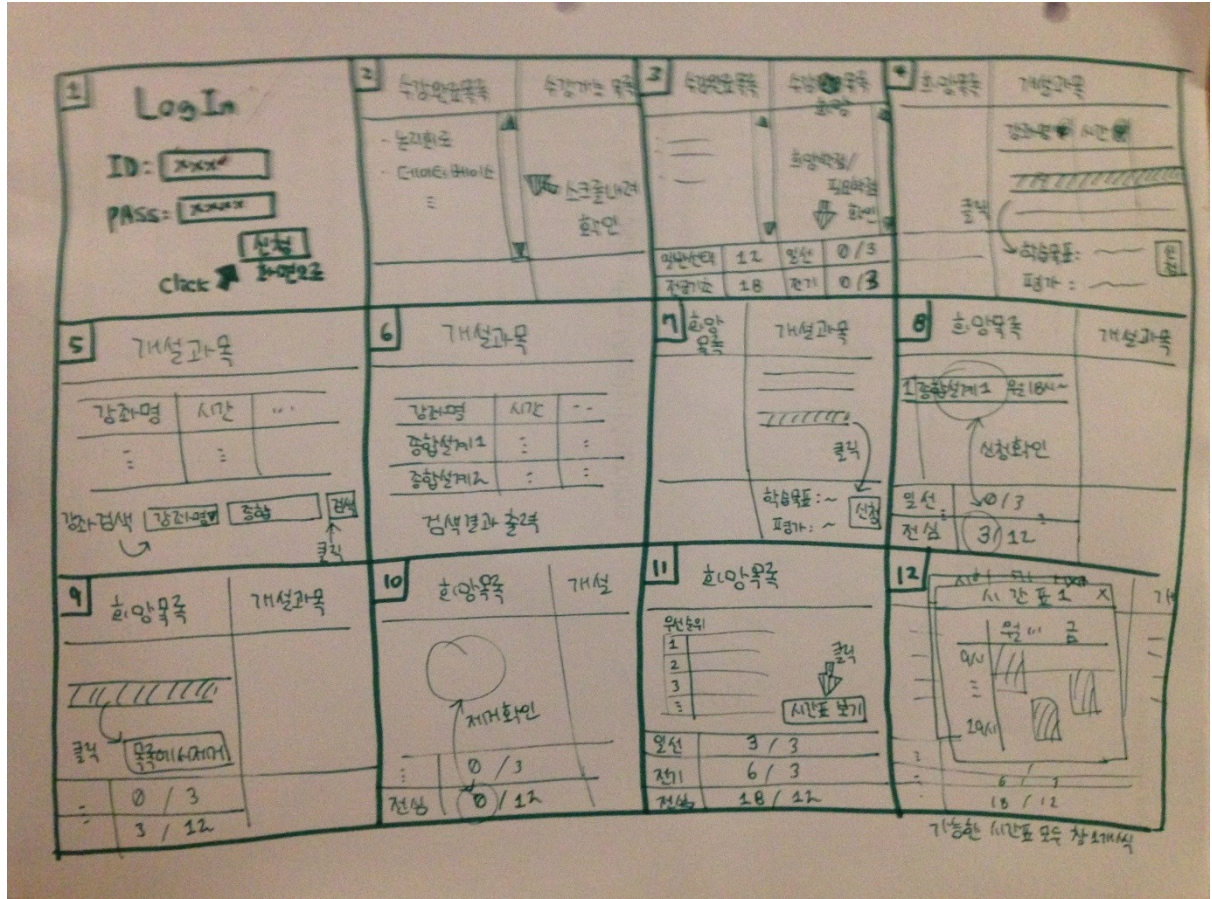 1
LogIn
ID: xxxx
PASS: xxxx
신청
화면으로
Click
2
수강완료목록
수강가능 목록
- 논리회로
- 데이터베이스
스크롤내려
확인
3
수강완료목록
수강 목록
희망
희망학점/
필요학점
확인
일반선택 12 일선 0/3
전공기초 18 전기 0/3
4
희망목록 개설과목
강좌명 시간
클릭
학습목표: ~
평가: ~
신청
5
개설과목
강좌명 시간 ...
강좌검색 강좌명 종합 검색
클릭
6
개설과목
강좌명 시간 ..
종합설계1
종합설계2
검색결과 출력
7
희망
목록
개설과목
클릭
학습목표: ~
평가: ~
신청
8
희망목록 개설과목
1 종합설계1 월18시~
신청확인
일선 0/3
전심 3/12
9
희망목록 개설과목
클릭
목록에서제거
0 / 3
3 / 12
10
희망목록 개설
제거확인
0 / 3
전심 0/12
11
희망목록
우선순위
1
2
3
클릭
시간표 보기
일선 3 / 3
전기 6 / 3
전심 18 / 12
12
시간표1 X
월 ... 금
9시
18 / 12
가능한 시간표 모두 창 1개씩